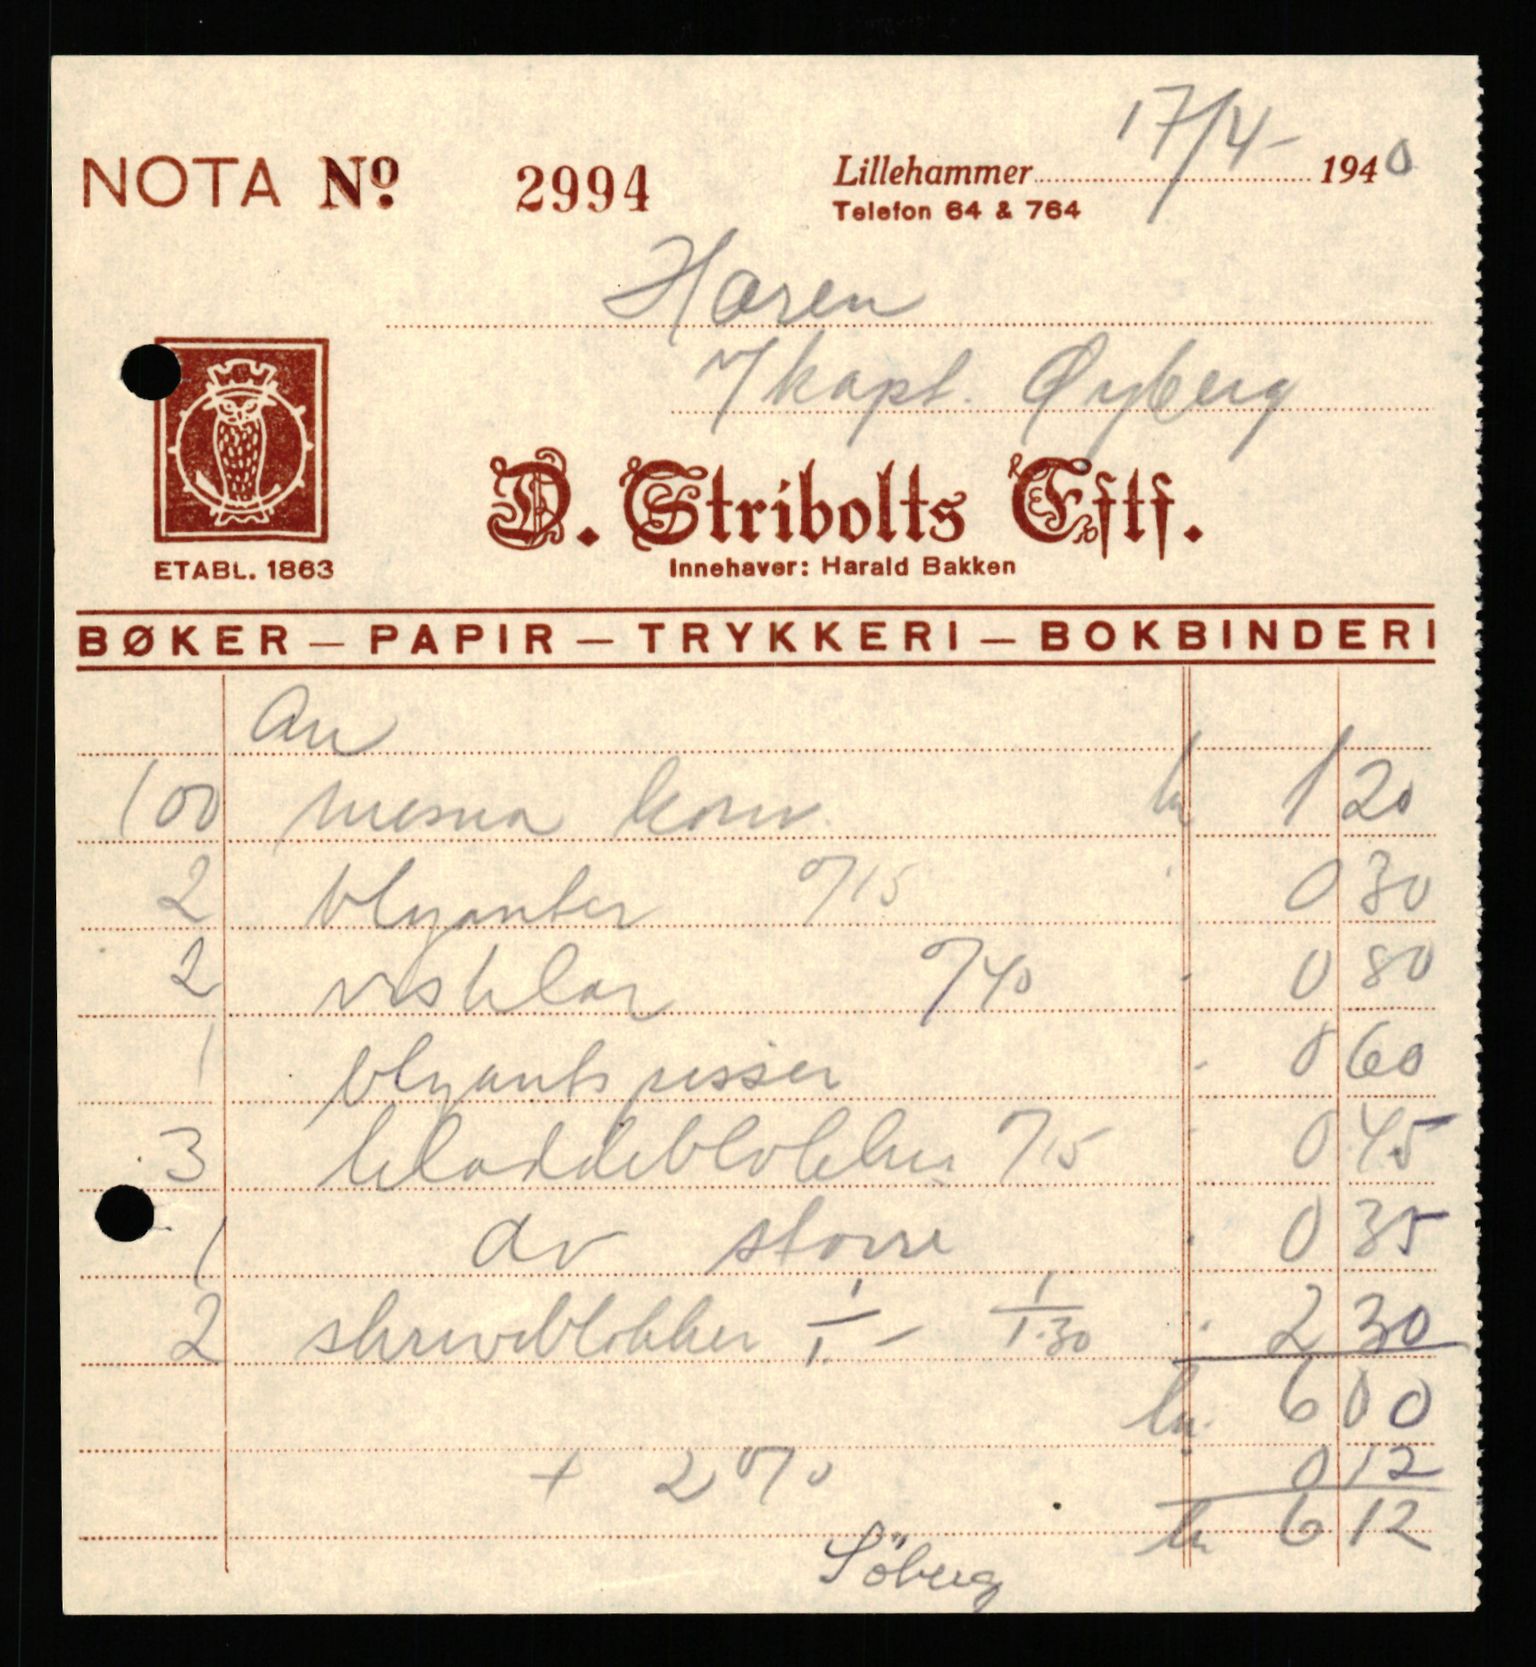 NOTA Nº 2994 Lillehammer 17/4- 1940
Telefon 64 & 764
Hæren
v/kapt. Øyberg
D. Stribolts Eftf.
Innehaver: Harald Bakken
ETABL. 1863
BØKER — PAPIR — TRYKKERI — BOKBINDERI
An
100 mesna konv. kr 1 20
2 blyanter %15 0 30
2 visklær %40 0 80
1 blyantspisser 0 60
3 kladdeblokker %15 0 45
1 do større 0 35
2 skriveblokker 1/1.- 1/1.30 2 30
kr. 6 00
+ 2% 0 12
kr 6 12
Söberg